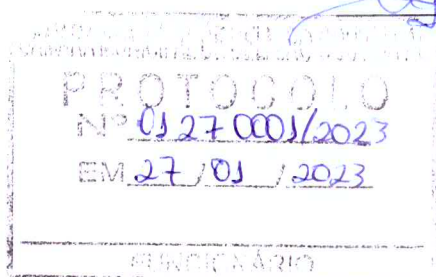 PROTOCOLO
Nº 01270001/2023
EM 27/01/2023
FUNCIONÁRIO